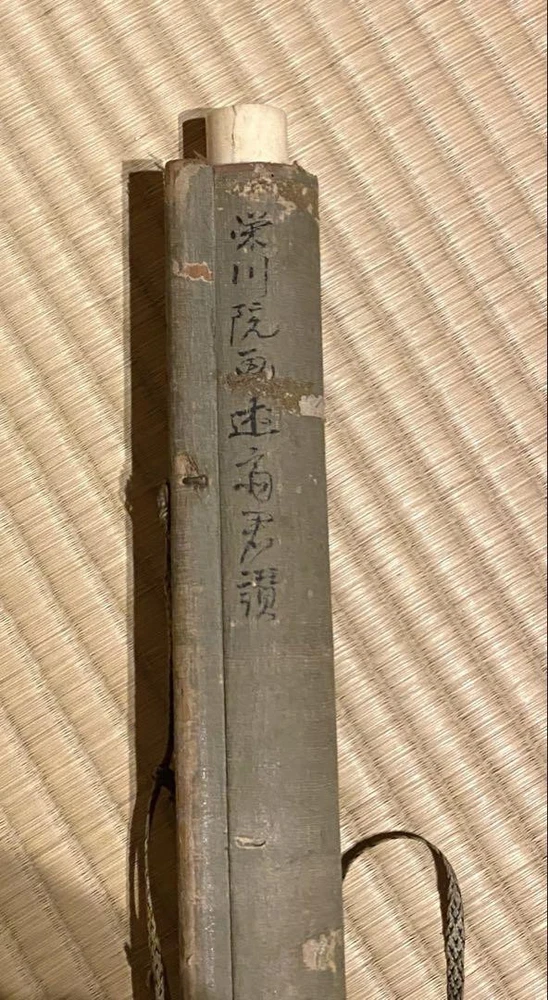 栄川院画述斎君讃